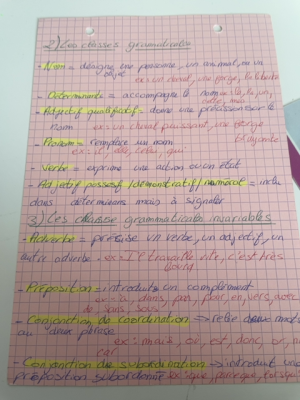 2) Les classes grammaticales
- Nom = désigne une personne, un animal, ou un
objet
ex: un cheval, une forge, la liberté
- Déterminants = accompagne le nom = le, la, un,
cette, mes
- Adjectif qualificatif = donne une précision sur le
nom ex: un cheval puissant, une forge
- Pronom = remplace un nom
ex: il, elle, celui, qui
- Verbe = exprime une action ou un état
- Adjectif possessif/démonstratif/numéral = inclu
dans déterminants mais à signaler
3) Les classe grammaticales invariables
- Adverbe = précise un verbe, un adjectif, un
autre adverbe - ex: Il travaille vite, c'est très
lourd
- Préposition = introduit un complément
ex: à, dans, par, pour, en, vers, avec
de, sans, sous
- Conjonction de coordination => relie deux mots
ou deux phrase
ex: mais, ou, est, donc, or, ni
car
- Conjonction de subordination => introduit une
préposition subordonnée ex: que, parceque,